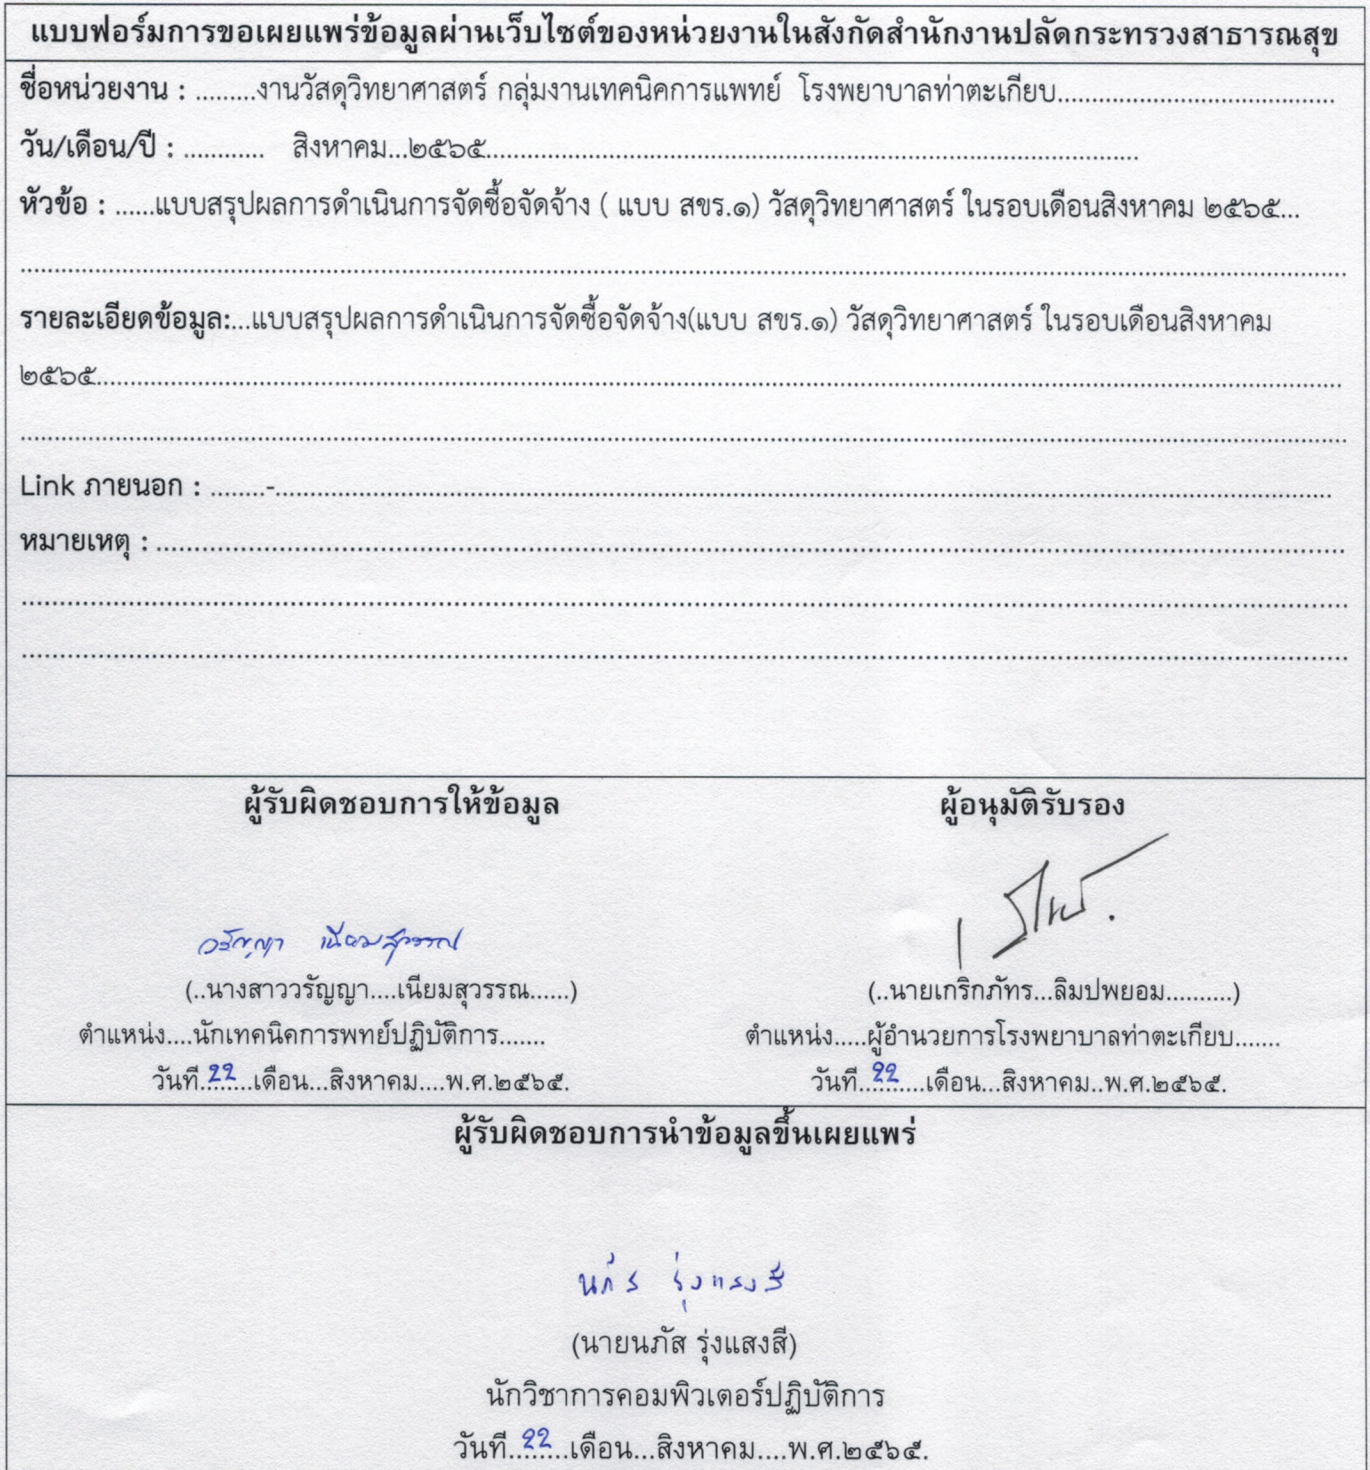 แบบฟอร์มการขอเผยแพร่ข้อมูลผ่านเว็บไซต์ของหน่วยงานในสังกัดสำนักงานปลัดกระทรวงสาธารณสุข
ชื่อหน่วยงาน : .........งานวัสดุวิทยาศาสตร์ กลุ่มงานเทคนิคการแพทย์ โรงพยาบาลท่าตะเกียบ.........................................
วัน/เดือน/ปี : ............ สิงหาคม...๒๕๖๕.................................................................................................
หัวข้อ : ......แบบสรุปผลการดำเนินการจัดซื้อจัดจ้าง ( แบบ สขร.๑) วัสดุวิทยาศาสตร์ ในรอบเดือนสิงหาคม ๒๕๖๕...
รายละเอียดข้อมูล:...แบบสรุปผลการดำเนินการจัดซื้อจัดจ้าง(แบบ สขร.๑) วัสดุวิทยาศาสตร์ ในรอบเดือนสิงหาคม
๒๕๖๕.................................................................................................
Link ภายนอก : ........-.................................................................................................
หมายเหตุ : .................................................................................................
ผู้รับผิดชอบการให้ข้อมูล ผู้อนุมัติรับรอง
วรัญญา เนียมสุวรรณ
(..นางสาววรัญญา....เนียมสุวรรณ......) (..นายเกริกภัทร...ลิมปพยอม..........)
ตำแหน่ง....นักเทคนิคการพทย์ปฏิบัติการ....... ตำแหน่ง.....ผู้อำนวยการโรงพยาบาลท่าตะเกียบ.......
วันที่..22....เดือน...สิงหาคม....พ.ศ.๒๕๖๕. วันที่..22....เดือน...สิงหาคม..พ.ศ.๒๕๖๕.
ผู้รับผิดชอบการนำข้อมูลขึ้นเผยแพร่
นภัส รุ่งแสงสี
(นายนภัส รุ่งแสงสี)
นักวิชาการคอมพิวเตอร์ปฏิบัติการ
วันที่..22....เดือน...สิงหาคม....พ.ศ.๒๕๖๕.